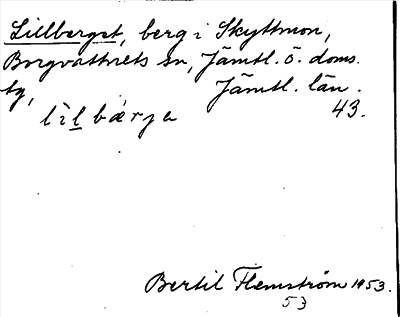 Lillberget, berg i Skyttmon,
Borgvattnets sn, Jämtl. ö. doms.
tg, Jämtl. län.
lìlbǽrjɑ 43.
Bertil Flemström 1953.
53